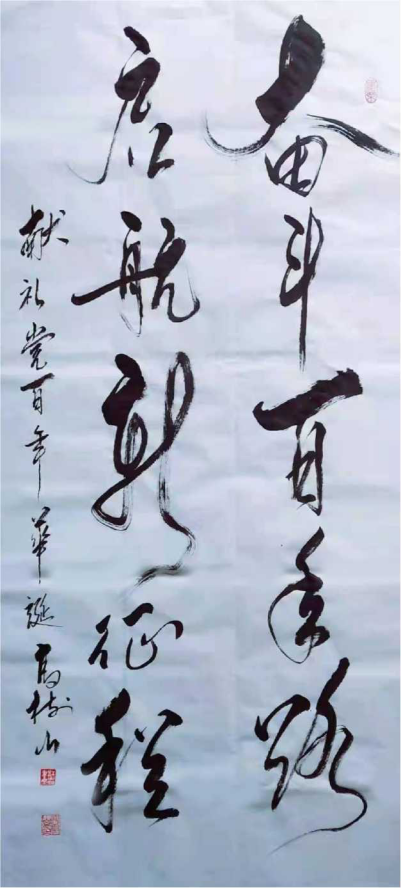 奋斗百年路
启航新征程
献礼党百年华诞 高树山